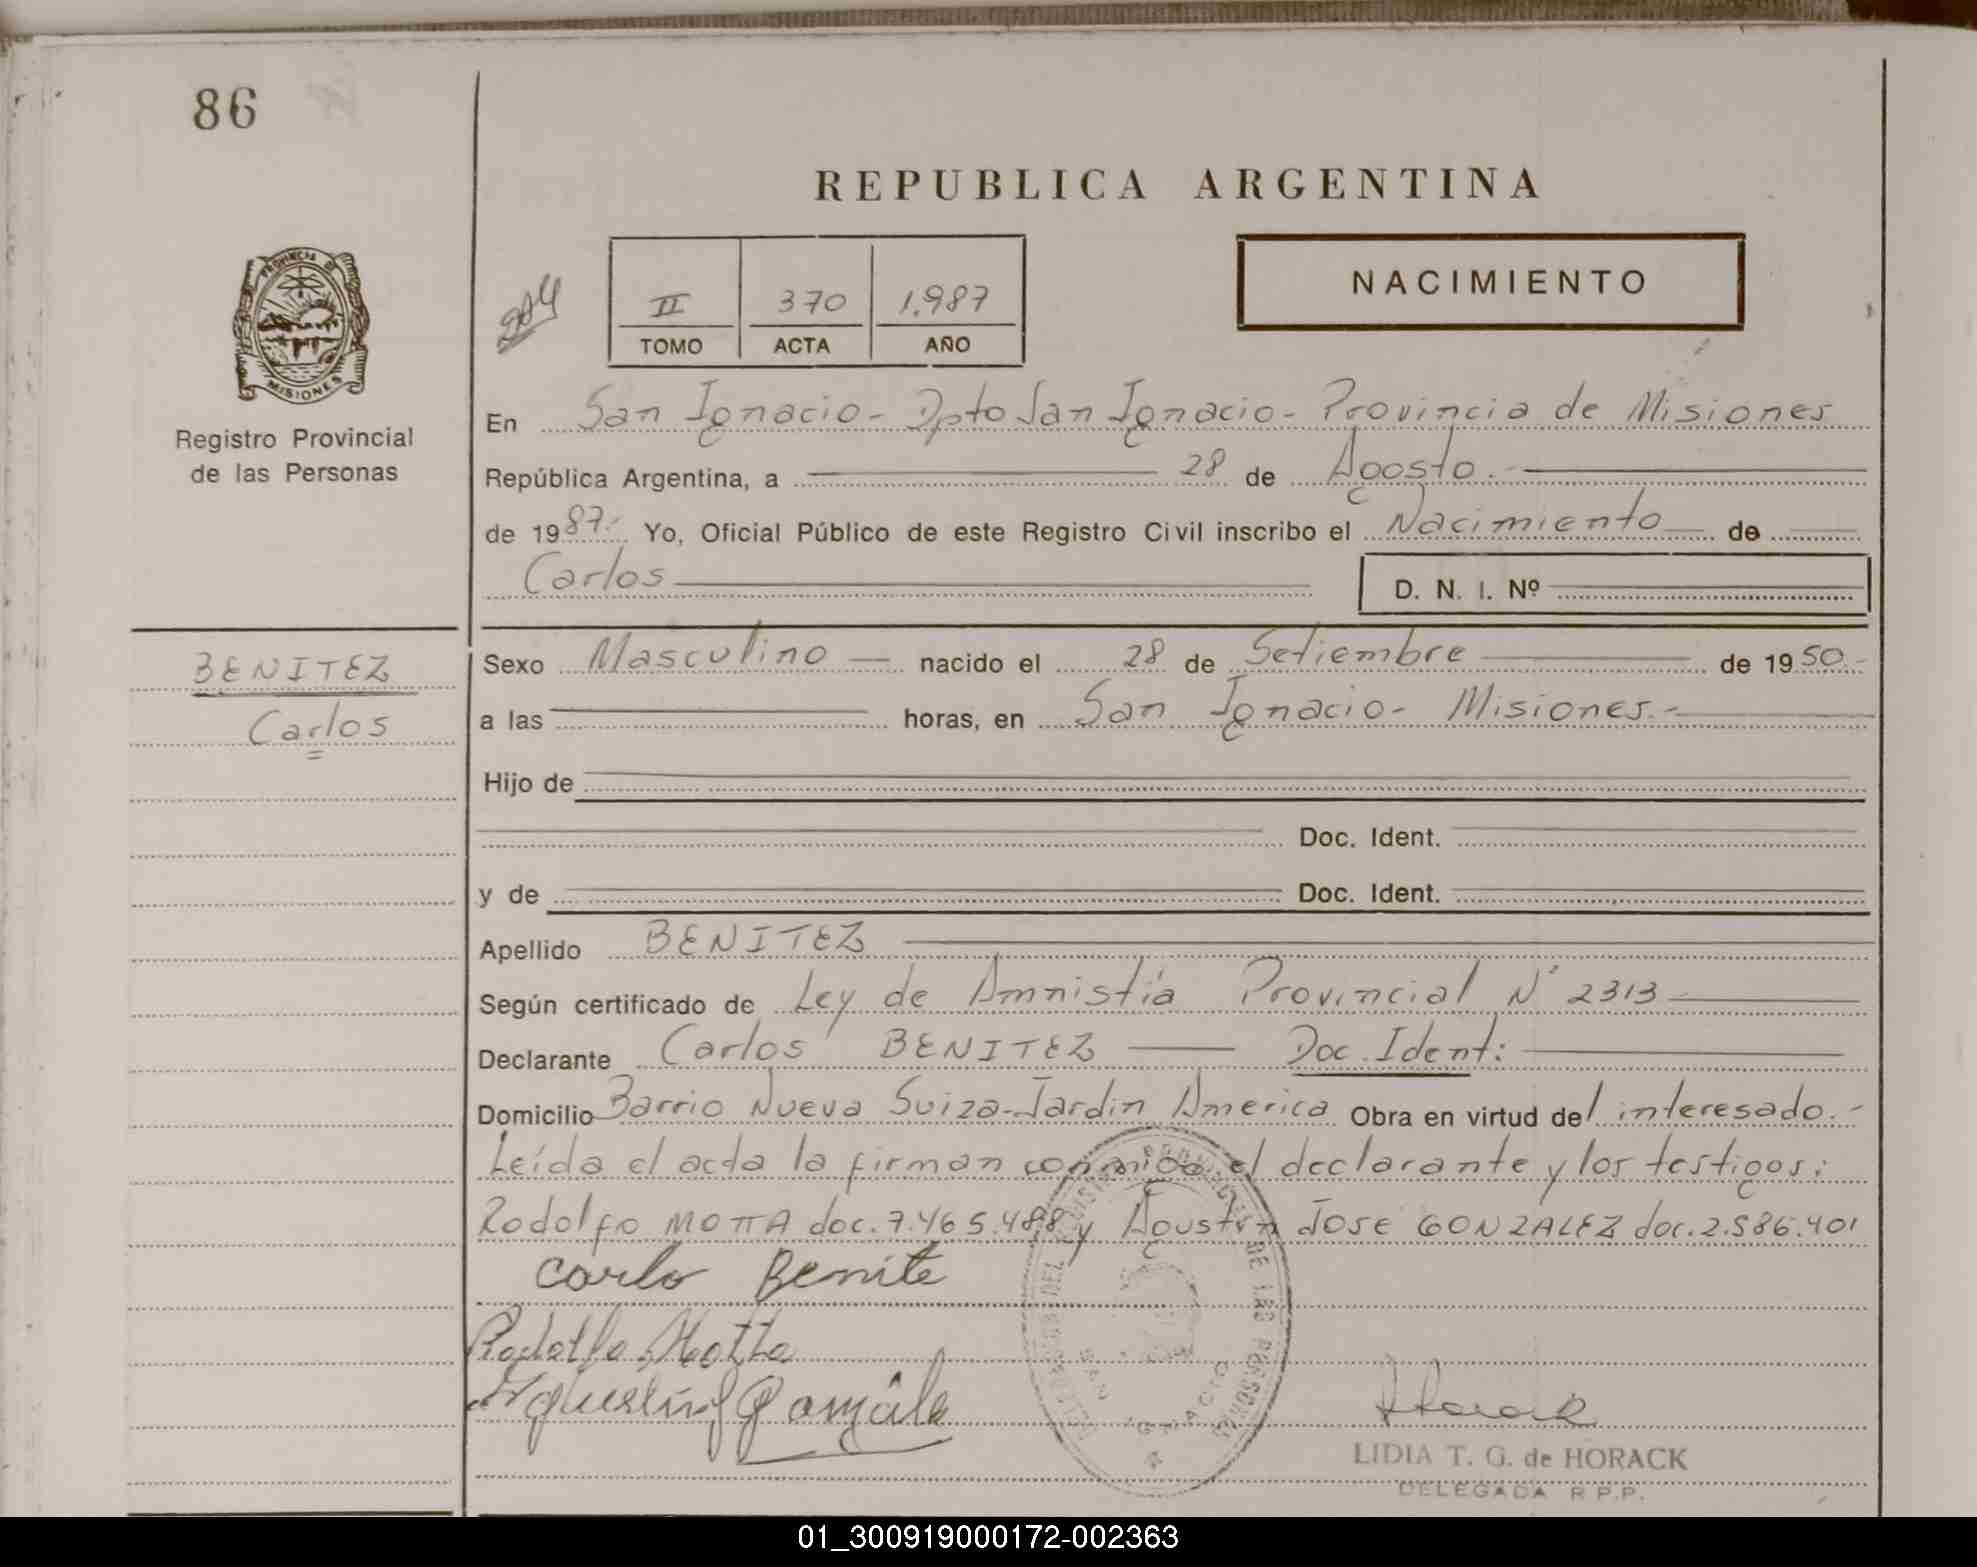 86
REPUBLICA ARGENTINA
PROVINCIA DE
MISIONES
Registro Provincial
de las Personas
II 370 1.987
TOMO ACTA AÑO
NACIMIENTO
En San Ignacio - Dpto San Ignacio - Provincia de Misiones
República Argentina, a 28 de Agosto.-
de 1987.- Yo, Oficial Público de este Registro Civil inscribo el Nacimiento de
Carlos D. N. I. Nº
BENITEZ
Carlos
Sexo Masculino nacido el 28 de Setiembre de 1950.-
a las horas, en San Ignacio - Misiones.-
Hijo de
Doc. Ident.
y de Doc. Ident.
Apellido BENITEZ
Según certificado de Ley de Amnistía Provincial Nº 2313
Declarante Carlos BENITEZ Doc. Ident:
Domicilio Barrio Nueva Suiza - Jardin America Obra en virtud del interesado.-
Leída el acta la firman conmigo el declarante y los testigos:
Rodolfo MOTTA doc. 7.465.488 y Agustin JOSE GONZALEZ doc. 2.586.401
Carlo Benite
Rodolfo Motta
Agustin J Gonzále
Horack
LIDIA T. G. de HORACK
DELEGADA R.P.P.
DE LAS PERSONAS
SAN IGNACIO
01_300919000172-002363